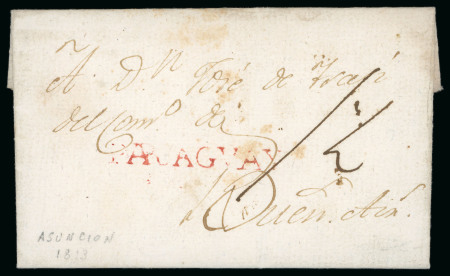 A Dn José de
del Comº de
PARAGUAY
1/2
Buens. Airs.
ASUNCION
1813